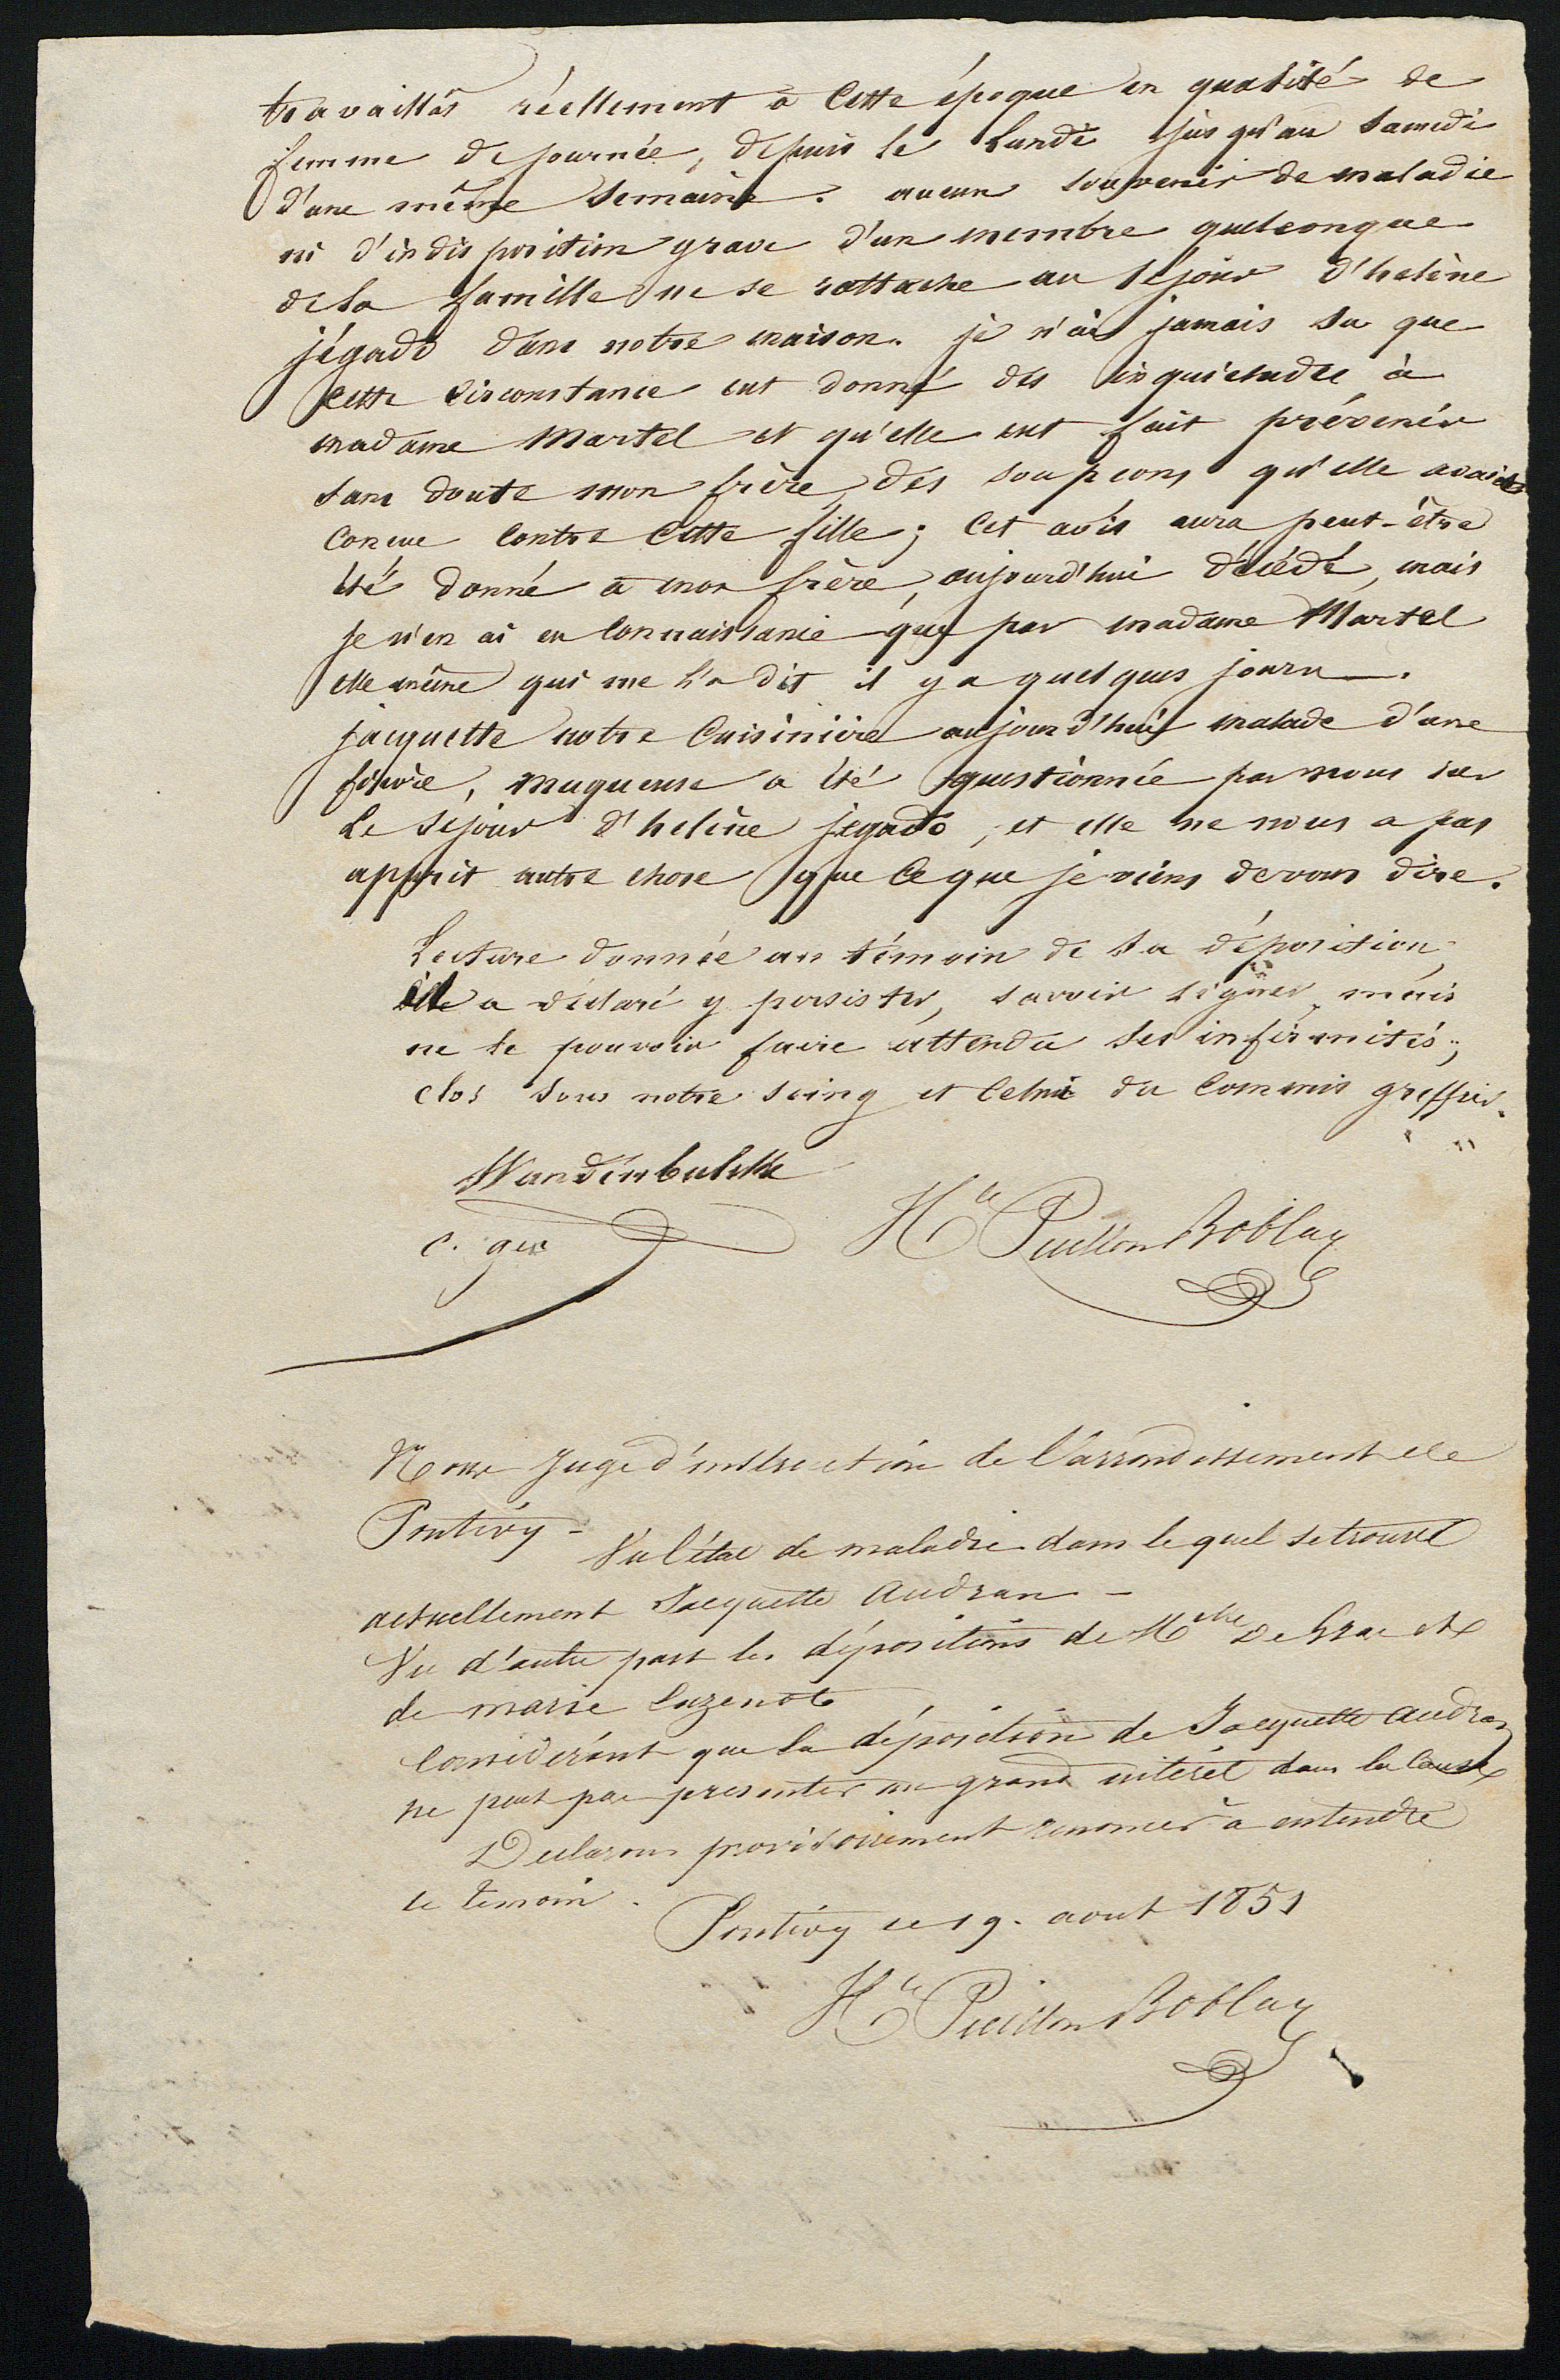 travaillat réellement à cette époque en qualité de
femme de journée, depuis le lundi jusqu'au samedi
d'une même semaine. aucun souvenir de maladie
ni d'indisposition grave d'un membre quelconque
de la famille ne se rattache au séjour d'helène
jégado dans notre maison. je n'ai jamais su que
cette circonstance eut donné des inquietudes à
madame Martel et qu'elle eut fait prévenir
sans doute mon frère, des soupçons qu'elle avait
conçue contre cette fille; Cet avis aura peut-être
été donné à mon frère, aujourd'hui décédé, mais
je n'en ai eu connaissance que par madame Martel
elle même qui me l'a dit il y a quelques jours.
jacquette notre Cuisinière aujourd'hui malade d'une
fièvre, muqueuse a été questionnée par nous sur
le séjour d'helène jégado, et elle ne nous a pas
apprit autre chose que ce que je viens de vous dire.
Lecture donnée au témoin de sa déposition,
elle a déclaré y persister, savoir signer mais
ne le pouvoir faire attendu ses infirmités;
clos sous notre seing et celui du Commis greffier.
Vandenbulcke
c. ger
Hte Puillon Boblay
Nous Juge d'instruction de l'arrondissement de
Pontivy - Vu l'état de maladie dans lequel se trouve
actuellement Jacquette Audran -
Vu d'autre part les dépositions de Melle et
de marie Cuzenot
Considérant que la déposition de Jacquette Audran
ne peut pas presenter un grand intérêt dans la cause
Declarons provisoirement renoncer à entendre
ce temoin.
Pontivy ce 19. aout 1851
Hte Puillon Boblay